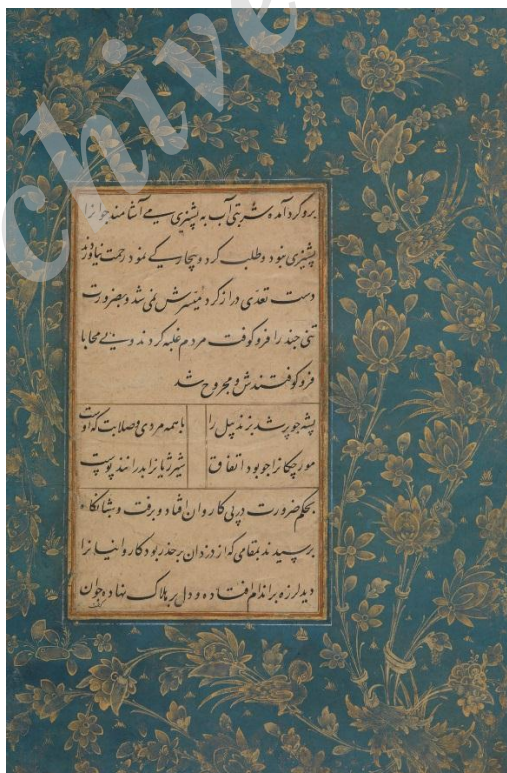 chive
برو گرد آمده شربتی آب به پشیزی می آشامند جوانرا
پشیزی نبود و طلب کرد و بیچارگی نمود رحمت نیاوردند
دست تعدی دراز کرد میسرش نمی شد و بضرورت
تنی چند را فرو کوفت مردم غلبه کردند و بی محابا
فرو کوفتندش و مجروح شد
پشه چو پر شد بزند پیل را با همه مردی و صلابت که اوست
مورچگانرا چو بود اتفاق شیر ژیانرا بدرانند پوست
بحکم ضرورت در پی کاروان افتاد و برفت و شبانگاه
برسیدند بمقامی که از دزدان بر حذر بود کاروانیانرا
دید لرزه بر اندام افتاده و دل بر هلاک نهاده جوان